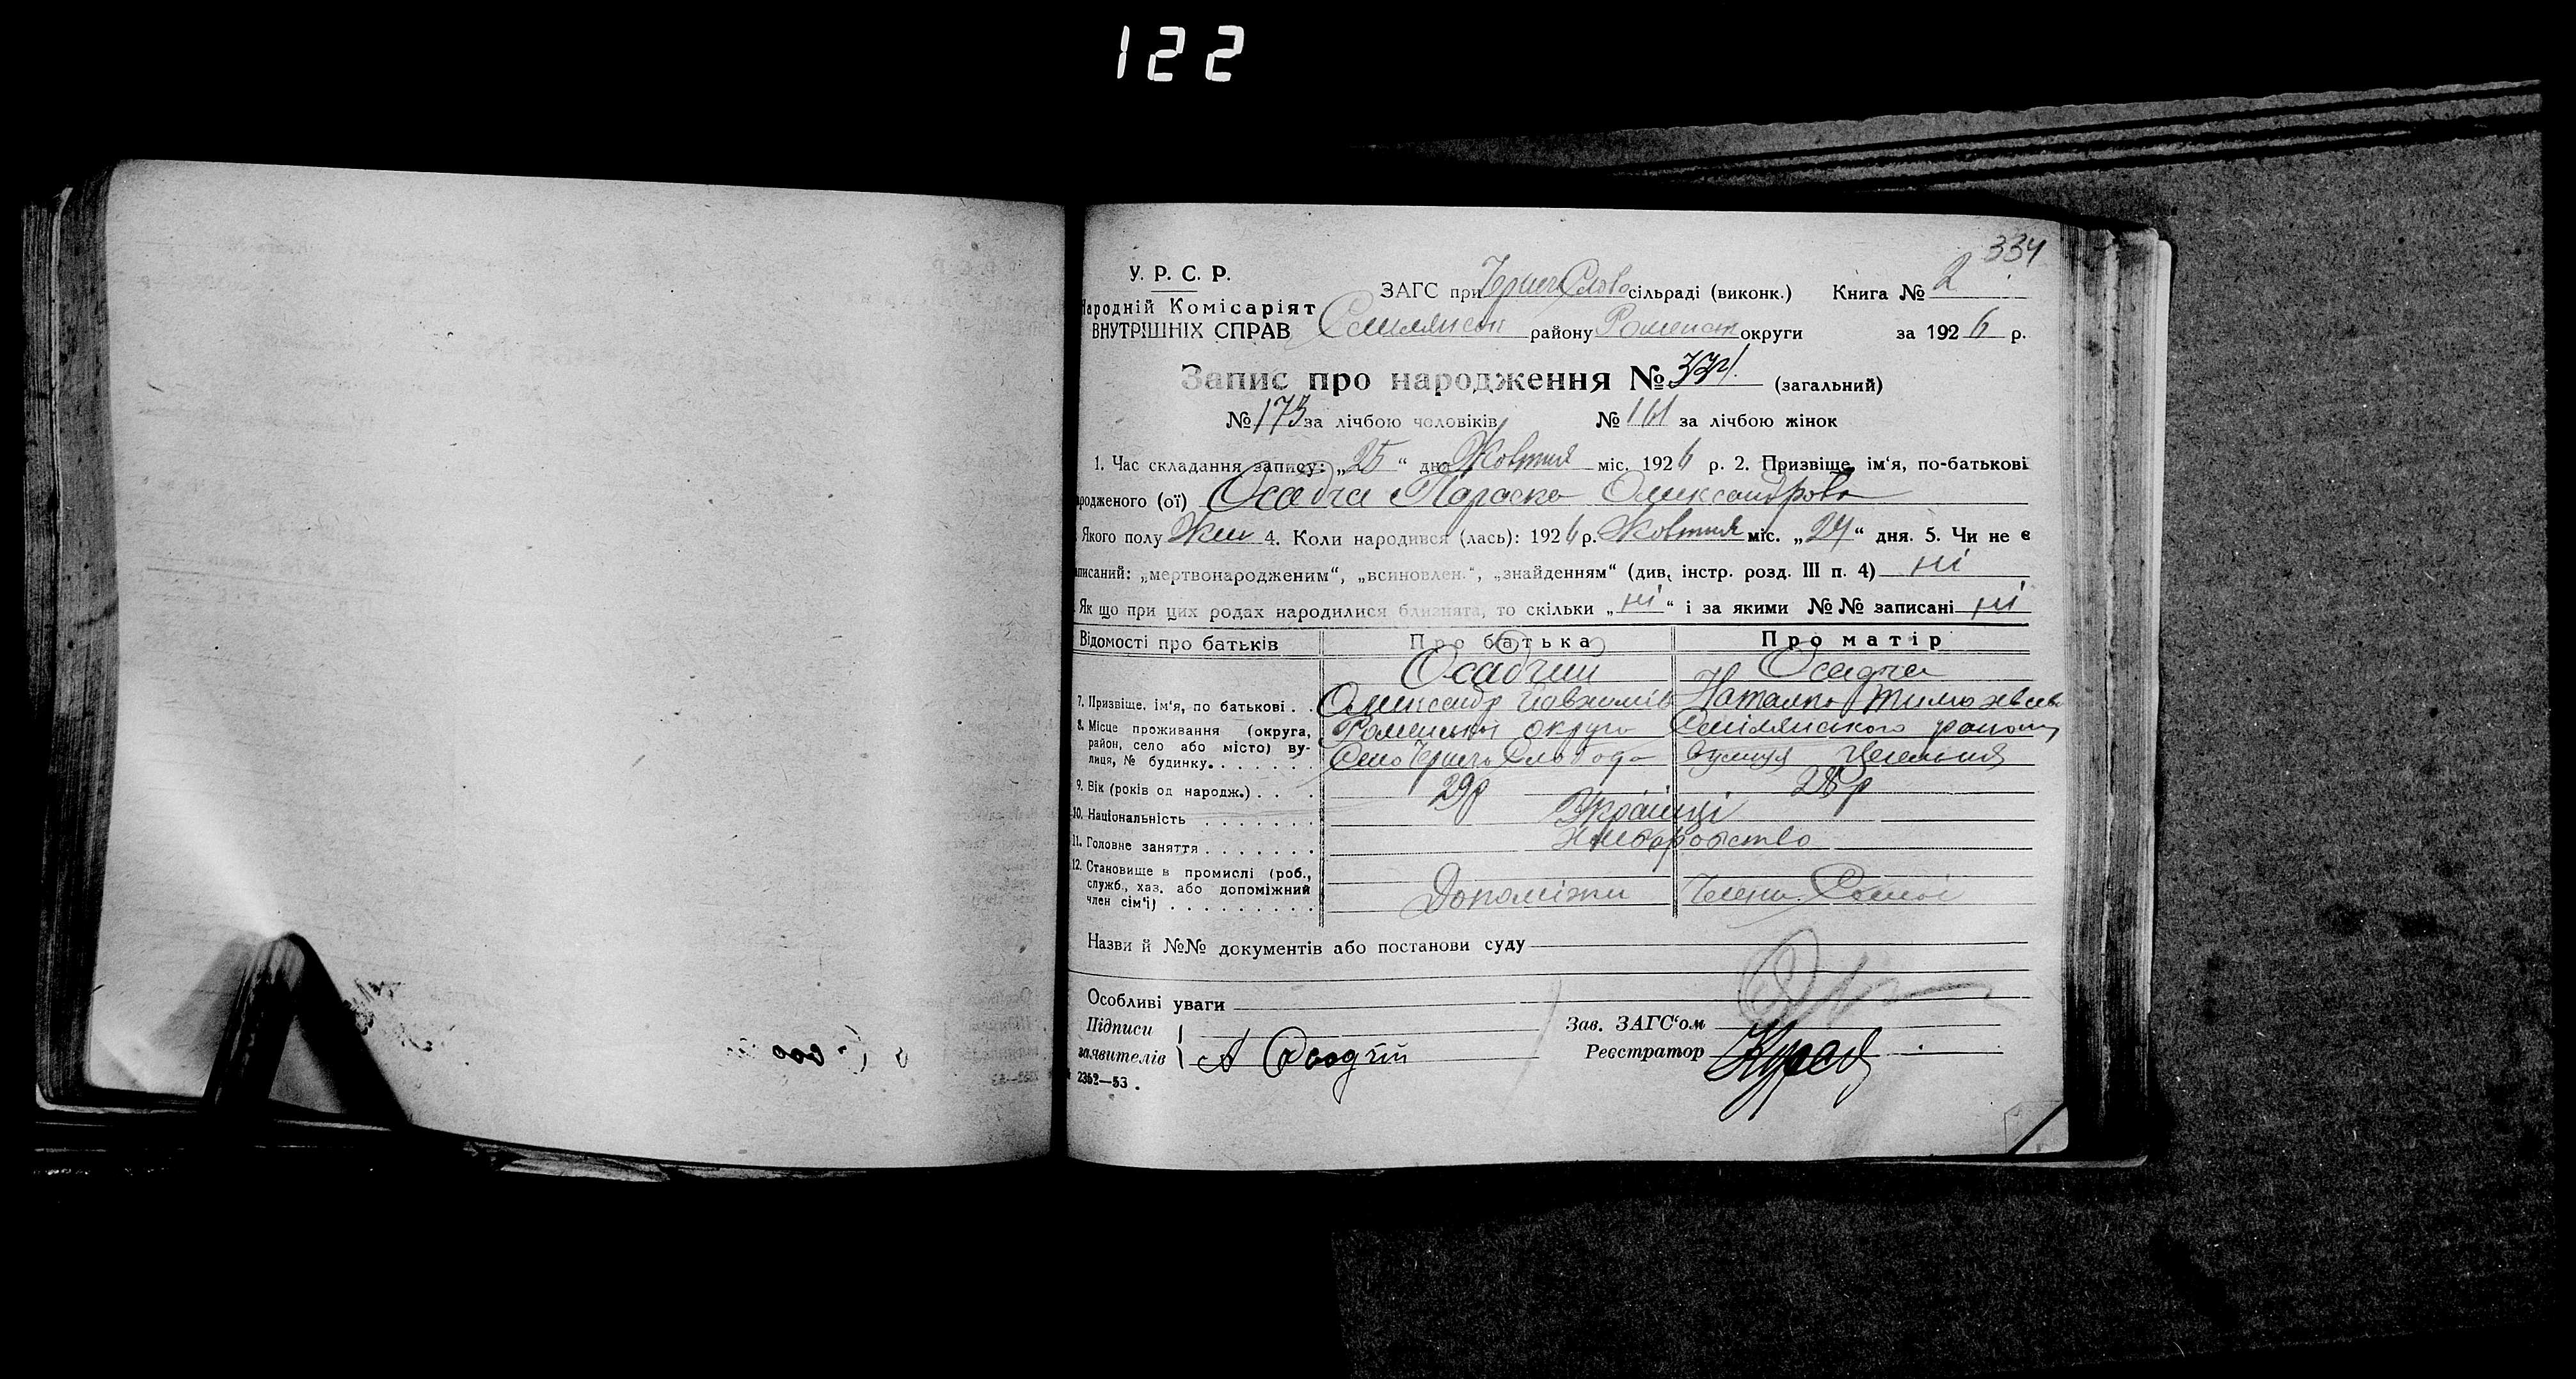 122
334
У. Р. С. Р.
Народній Комісаріят
ВНУТРІШНІХ СПРАВ
ЗАГС при сільраді (виконк.) Книга № 2
району Роменськ округи за 1926 р.
Запис про народження № 334. (загальний)
№ 173 за лічбою чоловіків № 161 за лічбою жінок
1. Час складання запису: „25“ дня Жовтня міс. 1926 р. 2. Призвіще, ім‘я, по-батькові
родженого (ої) Осадча Параска Олександрова
Якого полу Жін 4. Коли народився (лась): 1926 р. Жовтня міс. „24“ дня. 5. Чи не є
записаний: „мертвонародженим“, „всиновлен.“, „знайденням“ (див. інстр. розд. III п. 4) ні
Як що при цих родах народилися близнята, то скільки „ні“ і за якими №№ записані ні
Відомості про батьків Про батька Про матір
Осадчий Осадча
7. Призвіще, ім‘я, по батькові . . Олександр Наталка
8. Місце проживання (округа, район, село або місто) вулиця, № будинку. Роменської округи Смілянського району
Село Слобода вулиця
9. Вік (років од народж.) . . . 29р 28р
10. Національність . . . . . . . Українці
11. Головне заняття . . . . . . . Хліборобство
12. Становище в промислі (роб., служб., хаз. або допоміжний член сім‘ї) . . . . . . . . . Допоміжні Члени Семьі
Назви й №№ документів або постанови суду
Особливі уваги
Підписи
заявителів А Осадчій
Зав. ЗАГС‘ом
Реєстратор
2362—53.